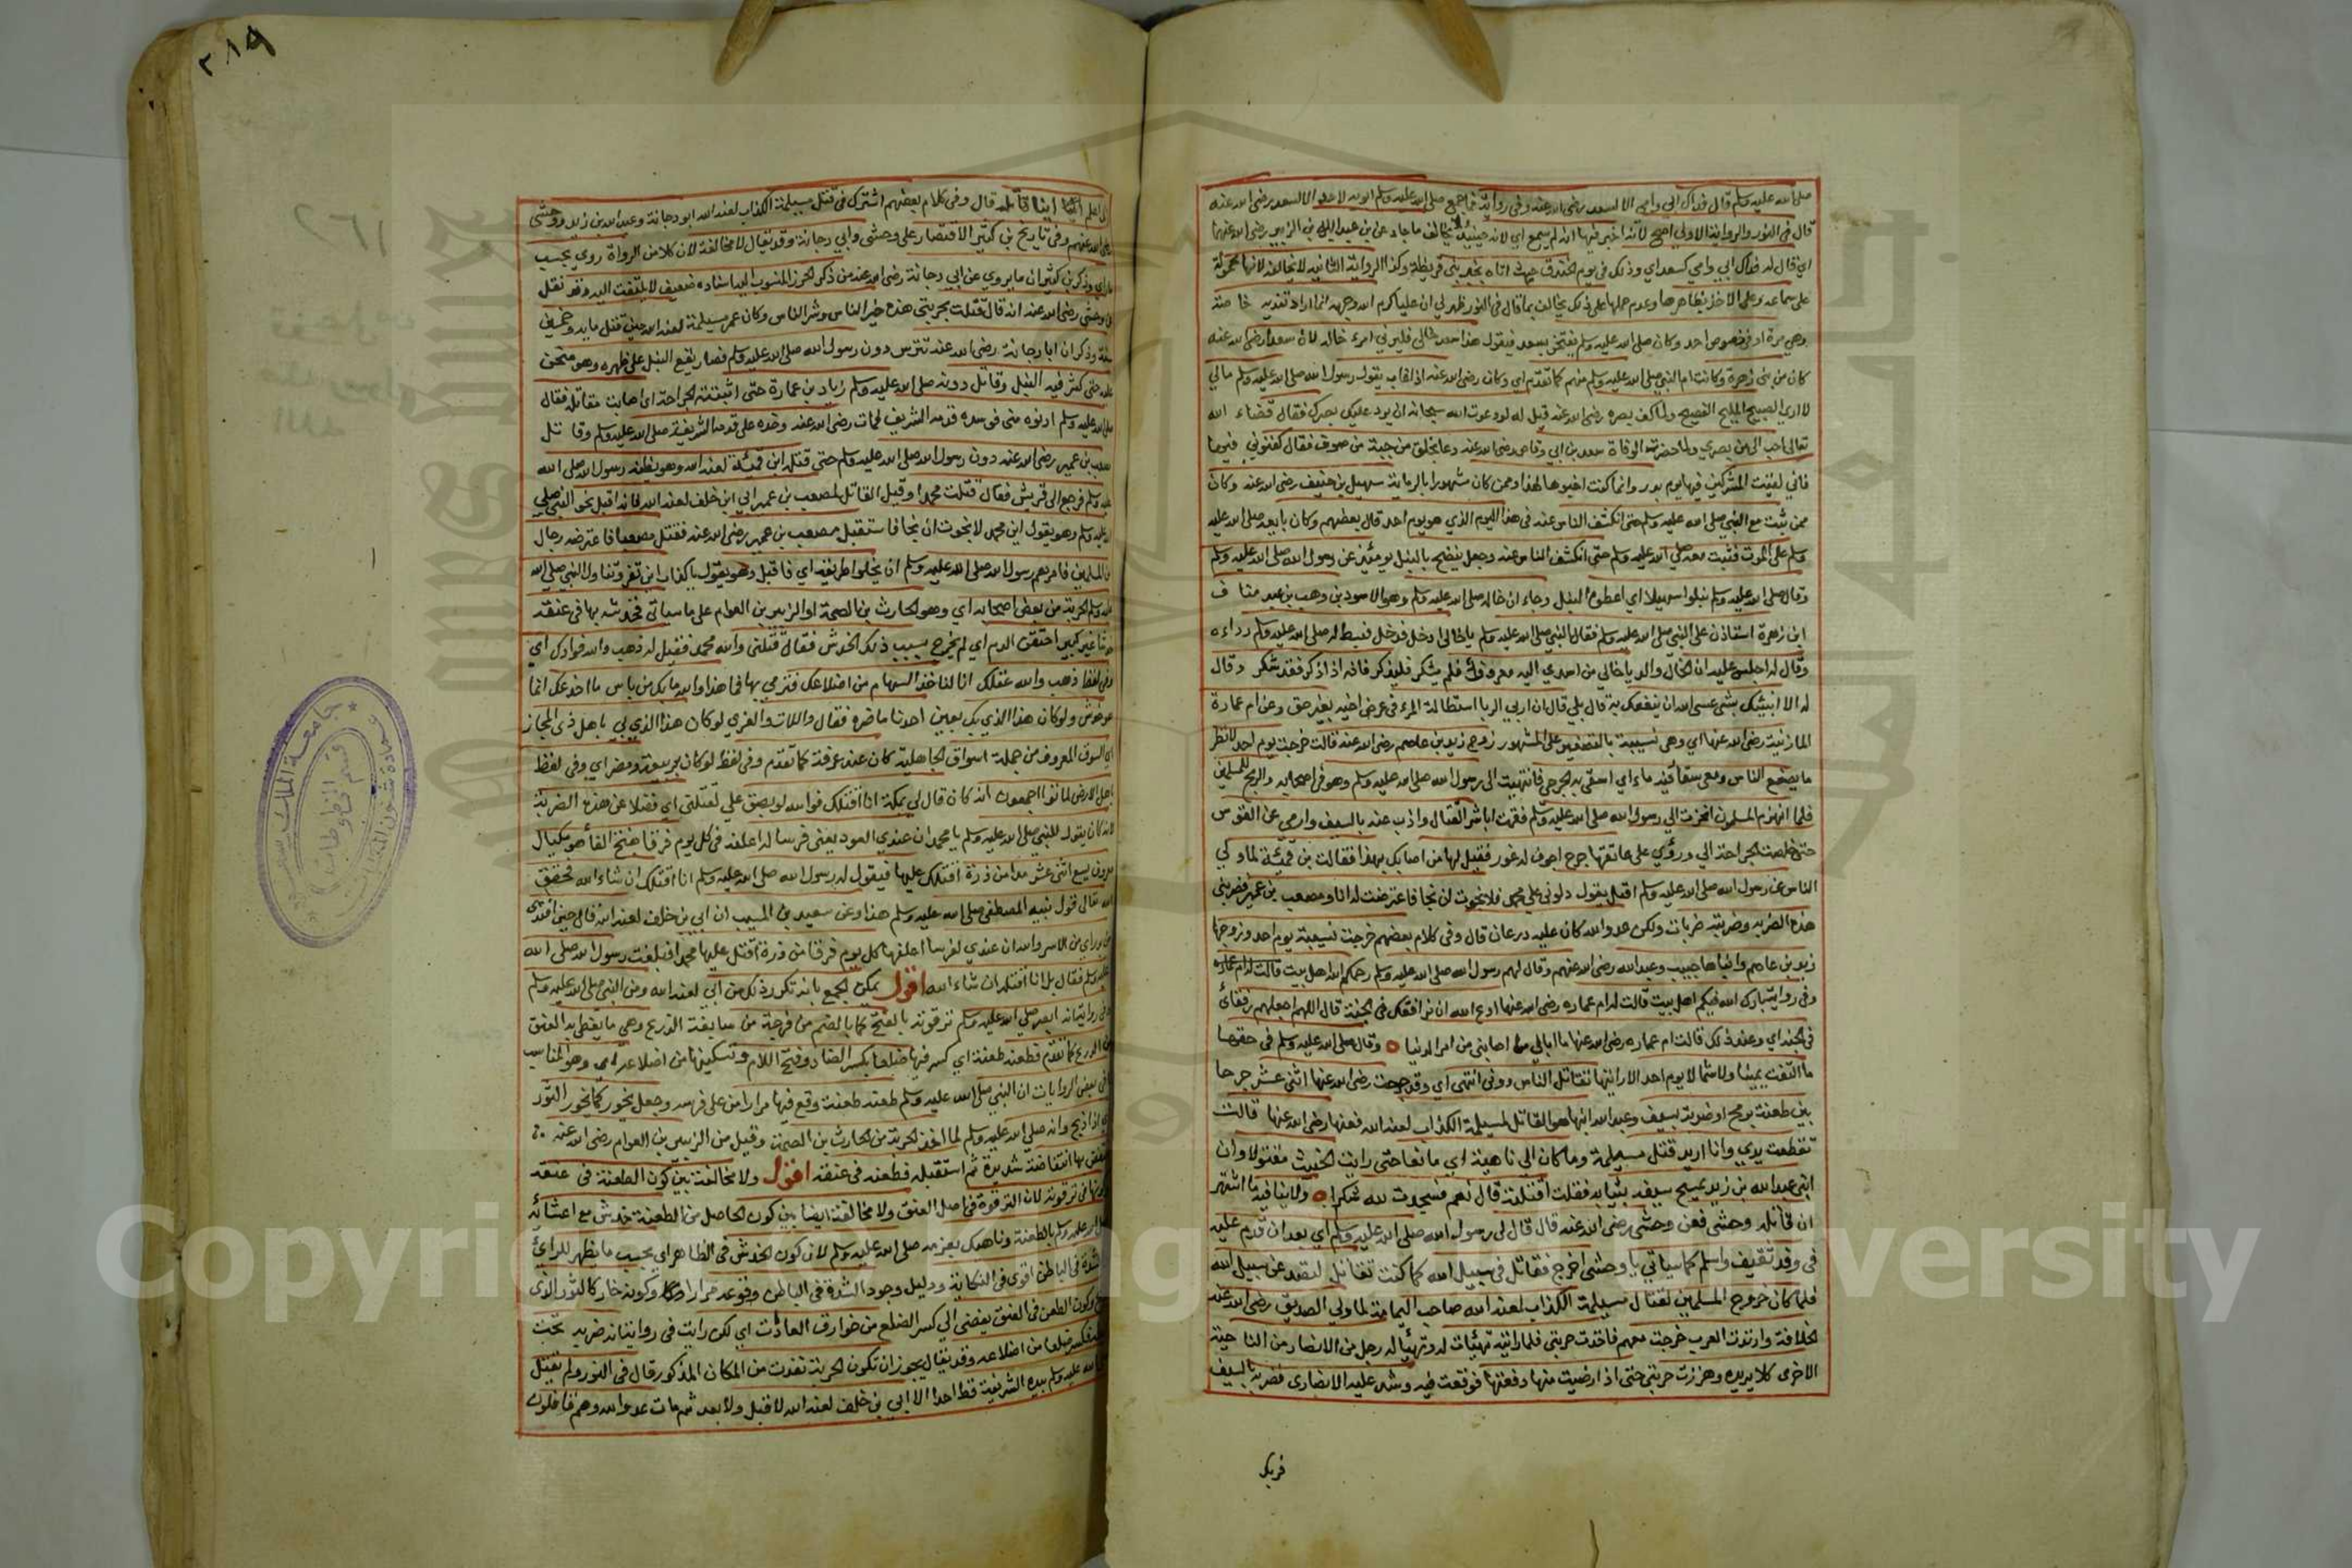 صلى الله عليه وسلم قال فداك ابي وامي الا لسعد رضي الله عنه وفي رواية فما جمع صلى الله عليه وسلم ابويه لاحد الا لسعد رضي الله عنه
قال في النور والرواية الاولى اصح لانه اخبر فيها انه لم يسمع اي لانه حينئذ لا يخالف ما جاء عن بن عبد الله بن الزبير رضي الله عنهما
اي قال له فداك ابي وامي كسعد اي وذلك في يوم الخندق حيث اتاه بخبر بني قريظة وكذا الرواية الثانية لا تخالفه لانها محمولة
على سماعه وعلى الاخذ بظاهرها وعدم حملها على ذلك يخالف بما قال في النور ظهر لي ان عليا كرم الله وجهه انما اراد تفدية خاصة
وهي مرة او في خصوص احد وكان صلى الله عليه وسلم يفتخر بسعد فيقول هذا سعد خالي فليرني امرء خاله لان سعدا رضي الله عنه
كان من بني زهرة وكانت ام النبي صلى الله عليه وسلم منهم كما تقدم اي وكان رضي الله عنه اذا غاب يقول رسول الله صلى الله عليه وسلم مالي
لا ارى الصبيح المليح الفصيح ولما كف بصره رضي الله عنه قيل له لو دعوت الله سبحانه ان يرد عليك بصرك فقال قضاء الله
تعالى احب الي من بصري ولما حضرته الوفاة سعد بن ابي وقاص رضي الله عنه دعا بخلق من جبة من صوف فقال كفنوني فيها
فاني لقيت المشركين فيها يوم بدر وانما كنت اخبوها لهذا وممن كان مشهورا بالرماية سهيل بن حنيف رضي الله عنه وكان
ممن ثبت مع النبي صلى الله عليه وسلم حتى انكشف الناس عنه في هذا اليوم الذي هو يوم احد قال بعضهم وكان بايعه صلى الله عليه
وسلم على الموت فثبت معه صلى الله عليه وسلم حتى انكشف الناس عنه وجعل ينضح بالنبل يومئذ عن رسول الله صلى الله عليه وسلم
وقال صلى الله عليه وسلم نبلوا سهيلا اي اعطوه النبل وجاء ان خاله صلى الله عليه وسلم وهو الاسود بن وهب بن عبد مناف
ابن زهرة استاذن على النبي صلى الله عليه وسلم فقال النبي صلى الله عليه وسلم يا خالي ادخل فدخل فبسط له صلى الله عليه وسلم رداءه
وقال له اجلس عليه ان الخال والد يا خالي من اسدي اليه معروف فلم يشكر فليذكر فانه اذا ذكر فقد شكر وقال
له الا انبئك بشئ عسى الله ان ينفعك به قال بلى قال ان اربي الربا استطالة المرء في عرض اخيه بغير حق وعن ام عمارة
المازنية رضي الله عنها اي وهي نسيبة بالتصغير على المشهور زوج زيد بن عاصم رضي الله عنه قالت خرجت يوم احد لانظر
ما يصنع الناس ومعي سقاء فيه ماء اي اسقي به الجرحى فانتهيت الى رسول الله صلى الله عليه وسلم وهو في اصحابه والريح للمسلمين
فلما انهزم المسلمون انحزت الى رسول الله صلى الله عليه وسلم فقمت اباشر القتال واذب عنه بالسيف وارمي عن القوس
حتى خلصت الجراحة الي ورؤي على عاتقها جرح اجوف له غور فقيل لها من اصابك بهذا فقالت بن قمئة لما ولي
الناس عن رسول الله صلى الله عليه وسلم اقبل يقول دلوني على محمد فلا نجوت ان نجا فاعترضت له انا ومصعب بن عمير فضربني
هذه الضربة وضربته ضربات ولكن عدو الله كان عليه درعان قال وفي كلام بعضهم خرجت نسيبة يوم احد وزوجها
زيد بن عاصم وابناها حبيب وعبد الله رضي الله عنهم وقال لهم رسول الله صلى الله عليه وسلم رحمكم الله اهل بيت قالت له ام عماره
وفي رواية بارك الله فيكم اهل بيت قالت له ام عماره رضي الله عنها ادع الله ان نرافقك في الجنة قال اللهم اجعلهم رفقائي
في الجنة اي وعند ذلك قالت ام عماره رضي الله عنها ما ابالي ما اصابني من امر الدنيا وقال صلى الله عليه وسلم في حقها
ما التفت يمينا ولا شمالا يوم احد الا رايتها تقاتل الناس دوني انتهى اي وقد جرحت رضي الله عنها اثني عشر جرحا
بين طعنة برمح او ضربة بسيف وعبد الله ابنها هو القاتل لمسيلمة الكذاب لعنه الله فعنها رضي الله عنها قالت
تقطعت يدي وانا اريد قتل مسيلمة وما كان الي ناهية اي مانعا حتى رايت الخبيث مقتولا وان
ابني عبد الله بن زيد يمسح سيفه بثيابه فقلت اقتلته قال نعم فسجدت لله شكرا ولا ينافيه ما اشتهر
ان قاتله وحشي فعن وحشي رضي الله عنه قال قال لي رسول الله صلى الله عليه وسلم اي بعد ان قدم عليه
في وفد ثقيف واسلم كما سياتي يا وحشي اخرج فقاتل في سبيل الله كما كنت تقاتل لتصد عن سبيل الله
فلما كان خروج المسلمين لقتال مسيلمة الكذاب لعنه الله صاحب اليمامة لما ولي الصديق رضي الله عنه
الخلافة وارتدت العرب خرجت معهم فاخذت حربتي فلما رايته تهيئات له وتهيأ له رجل من الانصار من الناحية
الاخرى كلانا يريده وهززت حربتي حتى اذا رضيت منها دفعتها فوقعت فيه وشد عليه الانصاري فضربه بالسيف
فربك
٢٨٩
اعلم اينا قاتله قال وفي كلام بعضهم اشترك في قتل مسيلمة الكذاب لعنه الله ابو دجانة وعبد الله بن زيد ووحشي
رضي الله عنهم وفي تاريخ بن كثير الاقتصار على وحشي وابي دجانة وقد يقال لا مخالفة لان كلا من الرواة روى بحسب
ما راى وذكر بن كثير ان ما يروي عن ابي دجانة رضي الله عنه من ذكر الحرز المنسوب اليه اسناده ضعيف لا يلتفت اليه وقد نقل
وحشي رضي الله عنه انه قال قتلت بحربتي هذه خير الناس وشر الناس وكان عمر مسيلمة لعنه الله حين قتل مايه وخمسين
سنة وذكر ان ابا دجانة رضي الله عنه تترس دون رسول الله صلى الله عليه وسلم فصار يقع النبل على ظهره وهو منحن
عليه حتى كثر فيه النبل وقاتل دونه صلى الله عليه وسلم زياد بن عمارة حتى اثبتته الجراحة اي اصابت مقاتله فقال
صلى الله عليه وسلم ادنوه مني فوسده قدمه الشريف فمات رضي الله عنه وخده على قدمه الشريفة صلى الله عليه وسلم وقاتل
مصعب بن عمير رضي الله عنه دون رسول الله صلى الله عليه وسلم حتى قتله ابن قمئة لعنه الله وهو يظنه رسول الله صلى الله
عليه وسلم فرجع الى قريش فقال قتلت محمدا وقيل القاتل لمصعب بن عمير ابي ابن خلف لعنه الله فانه اقبل نحو النبي صلى
الله عليه وسلم وهو يقول اين محمد لا نجوت ان نجا فاستقبل مصعب بن عمير رضي الله عنه فقتل مصعبا فاعترضه رجال
من المسلمين فامرهم رسول الله صلى الله عليه وسلم ان يخلوا طريقه اي فاقبل وهو يقول يا كذاب اين تفر وتناول النبي صلى الله
عليه وسلم الحربة من بعض اصحابه اي وهو الحارث بن الصمة او الزبير بن العوام على ما سياتي فخدشه بها في عنقه
خدشا غير كبير احتقن الدم اي لم يخرج بسبب ذلك الخدش فقال قتلني والله محمد فقيل له ذهب والله فوادك اي
وفي لفظ ذهب والله عقلك انا لناخذ السهام من اضلاعك فترمي بها فما هذا والله ما بك من باس ما اخدعك انما
هو خدش ولو كان هذا الذي بك بعين احدنا ما ضره فقال واللات والعزى لو كان هذا الذي بي باهل ذي المجاز
اي السوق المعروف من جملة اسواق الجاهلية كان عند عرفة كما تقدم وفي لفظ لو كان بربيعة ومضر اي وفي لفظ
باهل الارض لماتوا اجمعون انه كان قال لي بمكة انا اقتلك فوالله لو بصق علي لقتلني اي فضلا عن هذه الضربة
لانه كان يقول للنبي صلى الله عليه وسلم يا محمد ان عندي العود يعني فرسا له اعلفه في كل يوم فرقا بفتح الفا هو مكيال
معروف يسع اثني عشر مدا من ذرة اقتلك عليها فيقول له رسول الله صلى الله عليه وسلم انا اقتلك ان شاء الله فحقق
الله تعالى قول نبيه المصطفى صلى الله عليه وسلم هذا وعن سعيد بن المسيب ان ابي بن خلف لعنه الله قال حين افتدى
من بدر اي من الاسر والله ان عندي لفرسا اعلفها كل يوم فرقا من ذرة اقتل عليها محمدا فبلغت رسول الله صلى الله
عليه وسلم فقال بل انا اقتله ان شاء الله اقول يمكن الجمع بانه تكرر ذلك من ابي لعنه الله ومن النبي صلى الله عليه وسلم
وفي رواية انه ابصر صلى الله عليه وسلم ترقوته بالفتح لا بالضم من فرجة من سابغة الدرع وهي ما يغطي به العنق
من الدرع كما تقدم فطعنه طعنة اي كسر فيها ضلعا بكسر الضاد وفتح اللام وتسكينها من اضلاعه اي وهو المناسب
وفي بعض الروايات ان النبي صلى الله عليه وسلم طعنه طعنة وقع فيها مرارا من على فرسه وجعل يخور كما يخور الثور
اذا ذبح وانه صلى الله عليه وسلم لما اخذ الحربة من الحارث بن الصمة وقيل من الزبير بن العوام رضي الله عنه
انتفض بها انتفاضة شديدة ثم استقبله فطعنه في عنقه اقول ولا مخالفة بين كون الطعنة في عنقه
وكونها في ترقوته لان الترقوة في اصل العنق ولا مخالفة ايضا بين كون الحاصل من الطعنة خدش مع اعتنائه
صلى الله عليه وسلم بالطعنة وناهيك بعزمه صلى الله عليه وسلم لان كون الخدش في الظاهر اي بحسب ما يظهر للرائي
والشدة في الباطن اقوى في النكاية ودليل وجود الشدة في الباطن وقوعه مرارا وكونه خار كالثور الذي
يذبح وكون الطعن في العنق يفضي الى كسر الضلع من خوارق العادات اي لكن رايت في رواية انه ضربه تحت
ابطه فكسر ضلعا من اضلاعه وقد يقال يجوز ان تكون الحربة نفذت من المكان المذكور قال في النور ولم يقتل
صلى الله عليه وسلم بيده الشريفة قط احدا الا ابي بن خلف لعنه الله لا قبل ولا بعد ثم مات عدو الله وهم قافلون
جامعة الملك سعود
قسم المخطوطات
عمادة شؤون المكتبات
Copyright © King Saud University